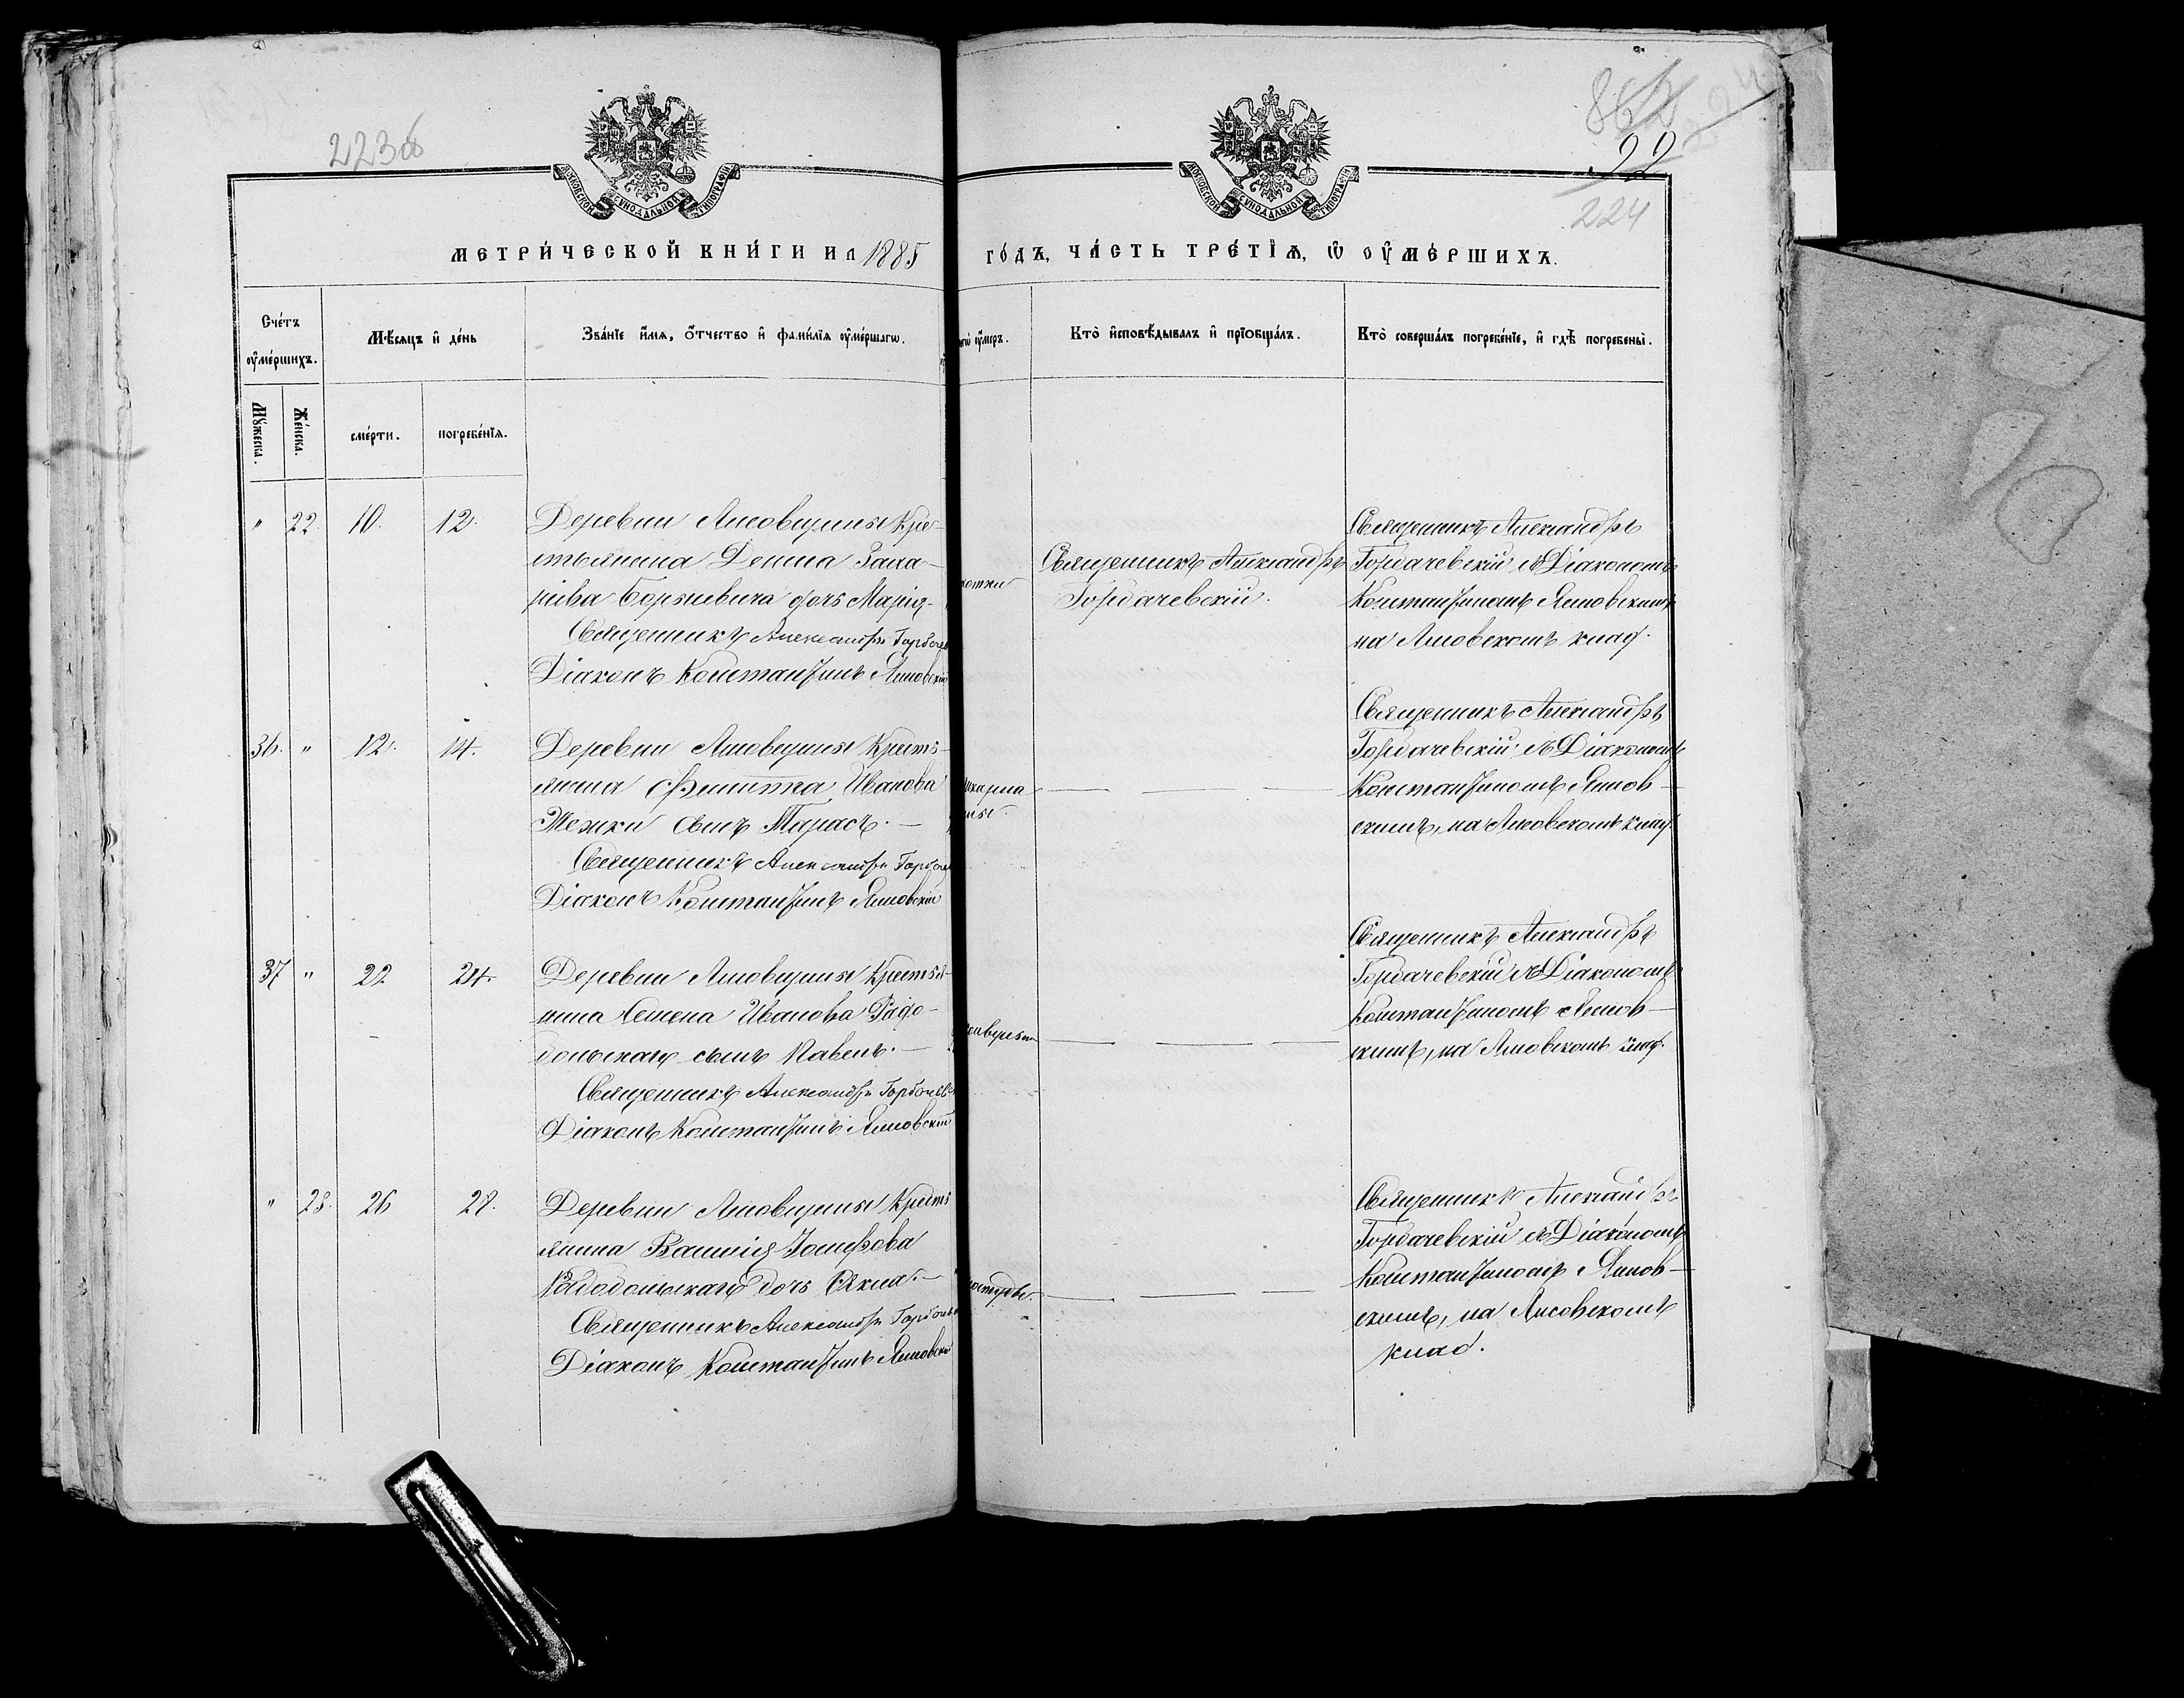 223об
862
22
224
МОСКОВСКОЙ СѴНОДАЛЬНОЙ ТИПОГРАФІИ
МОСКОВСКОЙ СѴНОДАЛЬНОЙ ТИПОГРАФІИ
МЕТРИ́ЧЕСКОЙ КНИ́ГИ НА 1885 ГО́ДЪ, ЧА́СТЬ ТРЕ́ТІЯ, Ѡ ОУМЕ́РШИХЪ.
Сче́тъ оумершихъ.
Мѣсяцъ и де́нь
Зва́нїе имя, отчество и фами́лїя оумершагѡ.
Кто̀ исповѣ́дывалъ и прїобща́лъ.
Кто̀ соверша́лъ погребе́нїе, и гдѣ̀ погребены̀.
Мꙋ́жеска.
Же́нска.
сме́рти.
погребе́нїѧ.
" 22. 10. 12.
Деревни Лисовщины Кре-
стьянина Дениса Заха-
ріива дочь Марія-
Священникъ Александръ
Діаконъ Константинъ Яновскій
Священникъ Александръ
Горбачевскій.
Священникъ Александръ
Горбачевскій съ Діакономъ
Константиномъ Яновскимъ
на Лисовскомъ клад.
36. " 12. 14.
Деревни Лисовщины Кресть-
янина Филиппа Иванова
сынъ Тарасъ. —
Священникъ Александръ
Діаконъ Константинъ Яновскій
Священникъ Александръ
Горбачевскій съ Діакономъ
Константиномъ Янов-
скимъ, на Лисовскомъ клад.
37 " 22 24.
Деревни Лисовщины Крестья-
нина Семена Иванова Радо-
больскаго сынъ Павелъ. —
Священникъ Александръ
Діаконъ Константинъ Яновскій
Священникъ Александръ
Горбачевскій съ Діакономъ
Константиномъ Янов-
скимъ, на Лисовскомъ клад.
" 23. 26 28.
Деревни Лисовщины Кресть
янина Василія Іосифова
Радобольскаго дочь Ѳекла. —
Священникъ Александръ
Діаконъ Константинъ Яновскій
Священникъ Александръ
Горбачевскій съ Діакономъ
Константиномъ Янов-
скимъ, на Лисовскомъ
клад.